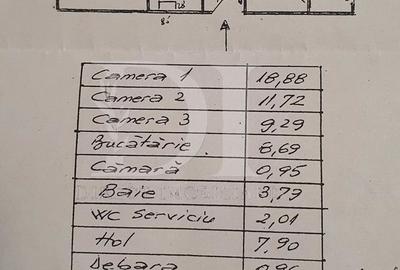 Camera 1 18,88
Camera 2 11,72
Camera 3 9,29
Bucătărie 8,69
Cămară 0,95
Baie 3,79
WC Serviciu 2,01
Hol 7,90
Debara